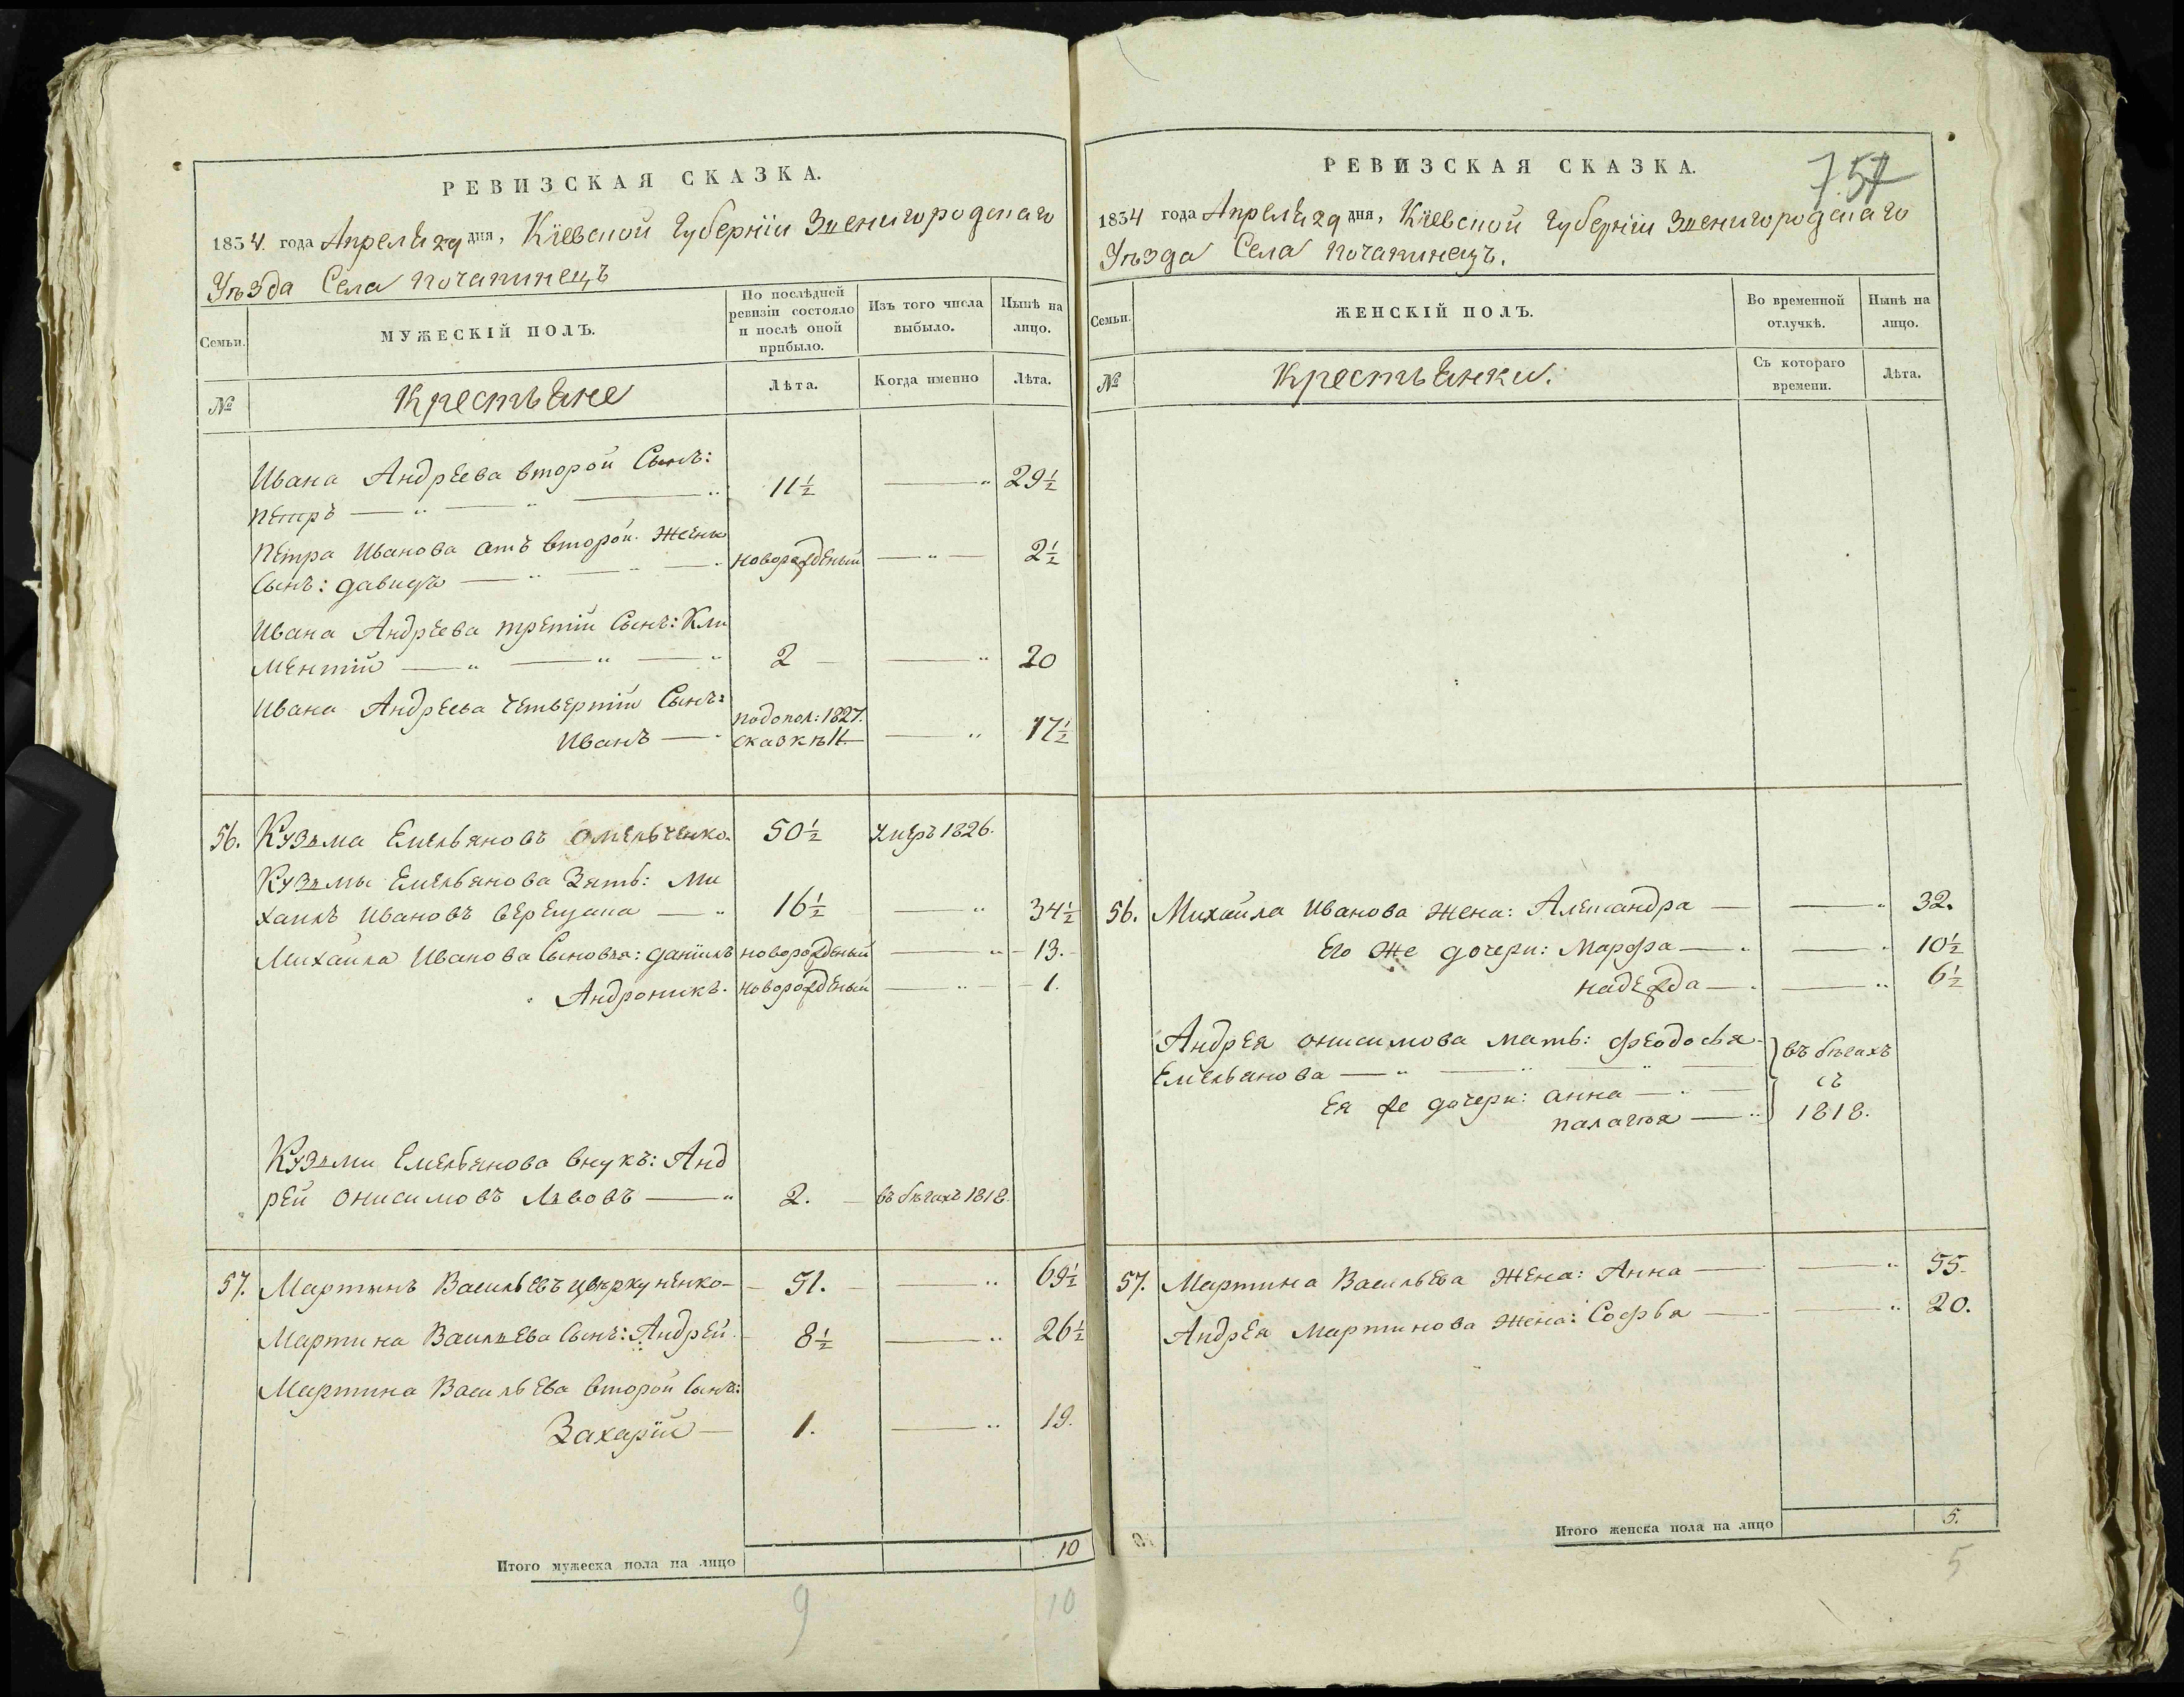 РЕВИЗСКАЯ СКАЗКА.
1834 года Апреля 29 дня, Кіевской Губерніи Звенигородскаго
Уѣзда Села Почапинецъ
Семьи.
МУЖЕСКІЙ ПОЛЪ.
По послѣдней
ревизіи состояло
и послѣ оной
прибыло.
Изъ того числа
выбыло.
Нынѣ на
лицо.
№
Крестьяне
Лѣта.
Когда именно
Лѣта.
Ивана Андреева второй Сынъ:
Петръ — " — " — " 11½ — " 29½
Петра Иванова отъ второй жены
Сынъ: Давидъ — " — " — " новорожденый — " — 2½
Ивана Андреева третій Сынъ: Кли
ментій — " — " — " 2 — — " 20
Ивана Андреева четвертій Сынъ:
Иванъ — " по допол: 1827.
сказкѣ 11. — " 17½
56. Кузьма Емельяновъ Омельченко. 50½ умеръ 1826.
Кузьмы Емельянова Зять: Ми
хаилъ Ивановъ Верещака — " 16½ — " 34½
Михаила Иванова Сыновья: Даніилъ новорожденый — " — 13.
Андроникъ. новорожденый — " — 1.
Кузьми Емельянова внукъ: Анд
рей Онисимовъ Львовъ — " 2. — въ бѣгахъ 1818.
57. Мартинъ Васильевъ Цверкуненко — 51. — — " 69½
Мартина Васильева Сынъ: Андрей. 8½ — " 26½
Мартина Васильева второй Сынъ:
Захарій — 1. — " 19.
Итого мужеска пола на лицо 10
9 10
РЕВИЗСКАЯ СКАЗКА.
757
1834 года Апреля 29 дня, Кіевской Губерніи Звенигородскаго
Уѣзда Села Почапинецъ.
Семьи.
ЖЕНСКІЙ ПОЛЪ.
Во временной
отлучкѣ.
Нынѣ на
лицо.
№
Крестьянки.
Съ котораго
времени.
Лѣта.
56. Михайла Иванова жена: Александра — — " 32.
Его же дочери: Марфа — " — " 10½
Надежда — " — " 6½
Андрея Онисимова мать: Феодосья
Емельянова — " — " — " —
Ея же дочери: Анна — " —
Палагія — "
въ бѣгахъ
съ
1818.
57. Мартина Васильева жена: Анна — — " 55.
Андрея Мартинова жена: Софья — — " 20.
Итого женска пола на лицо 5.
5